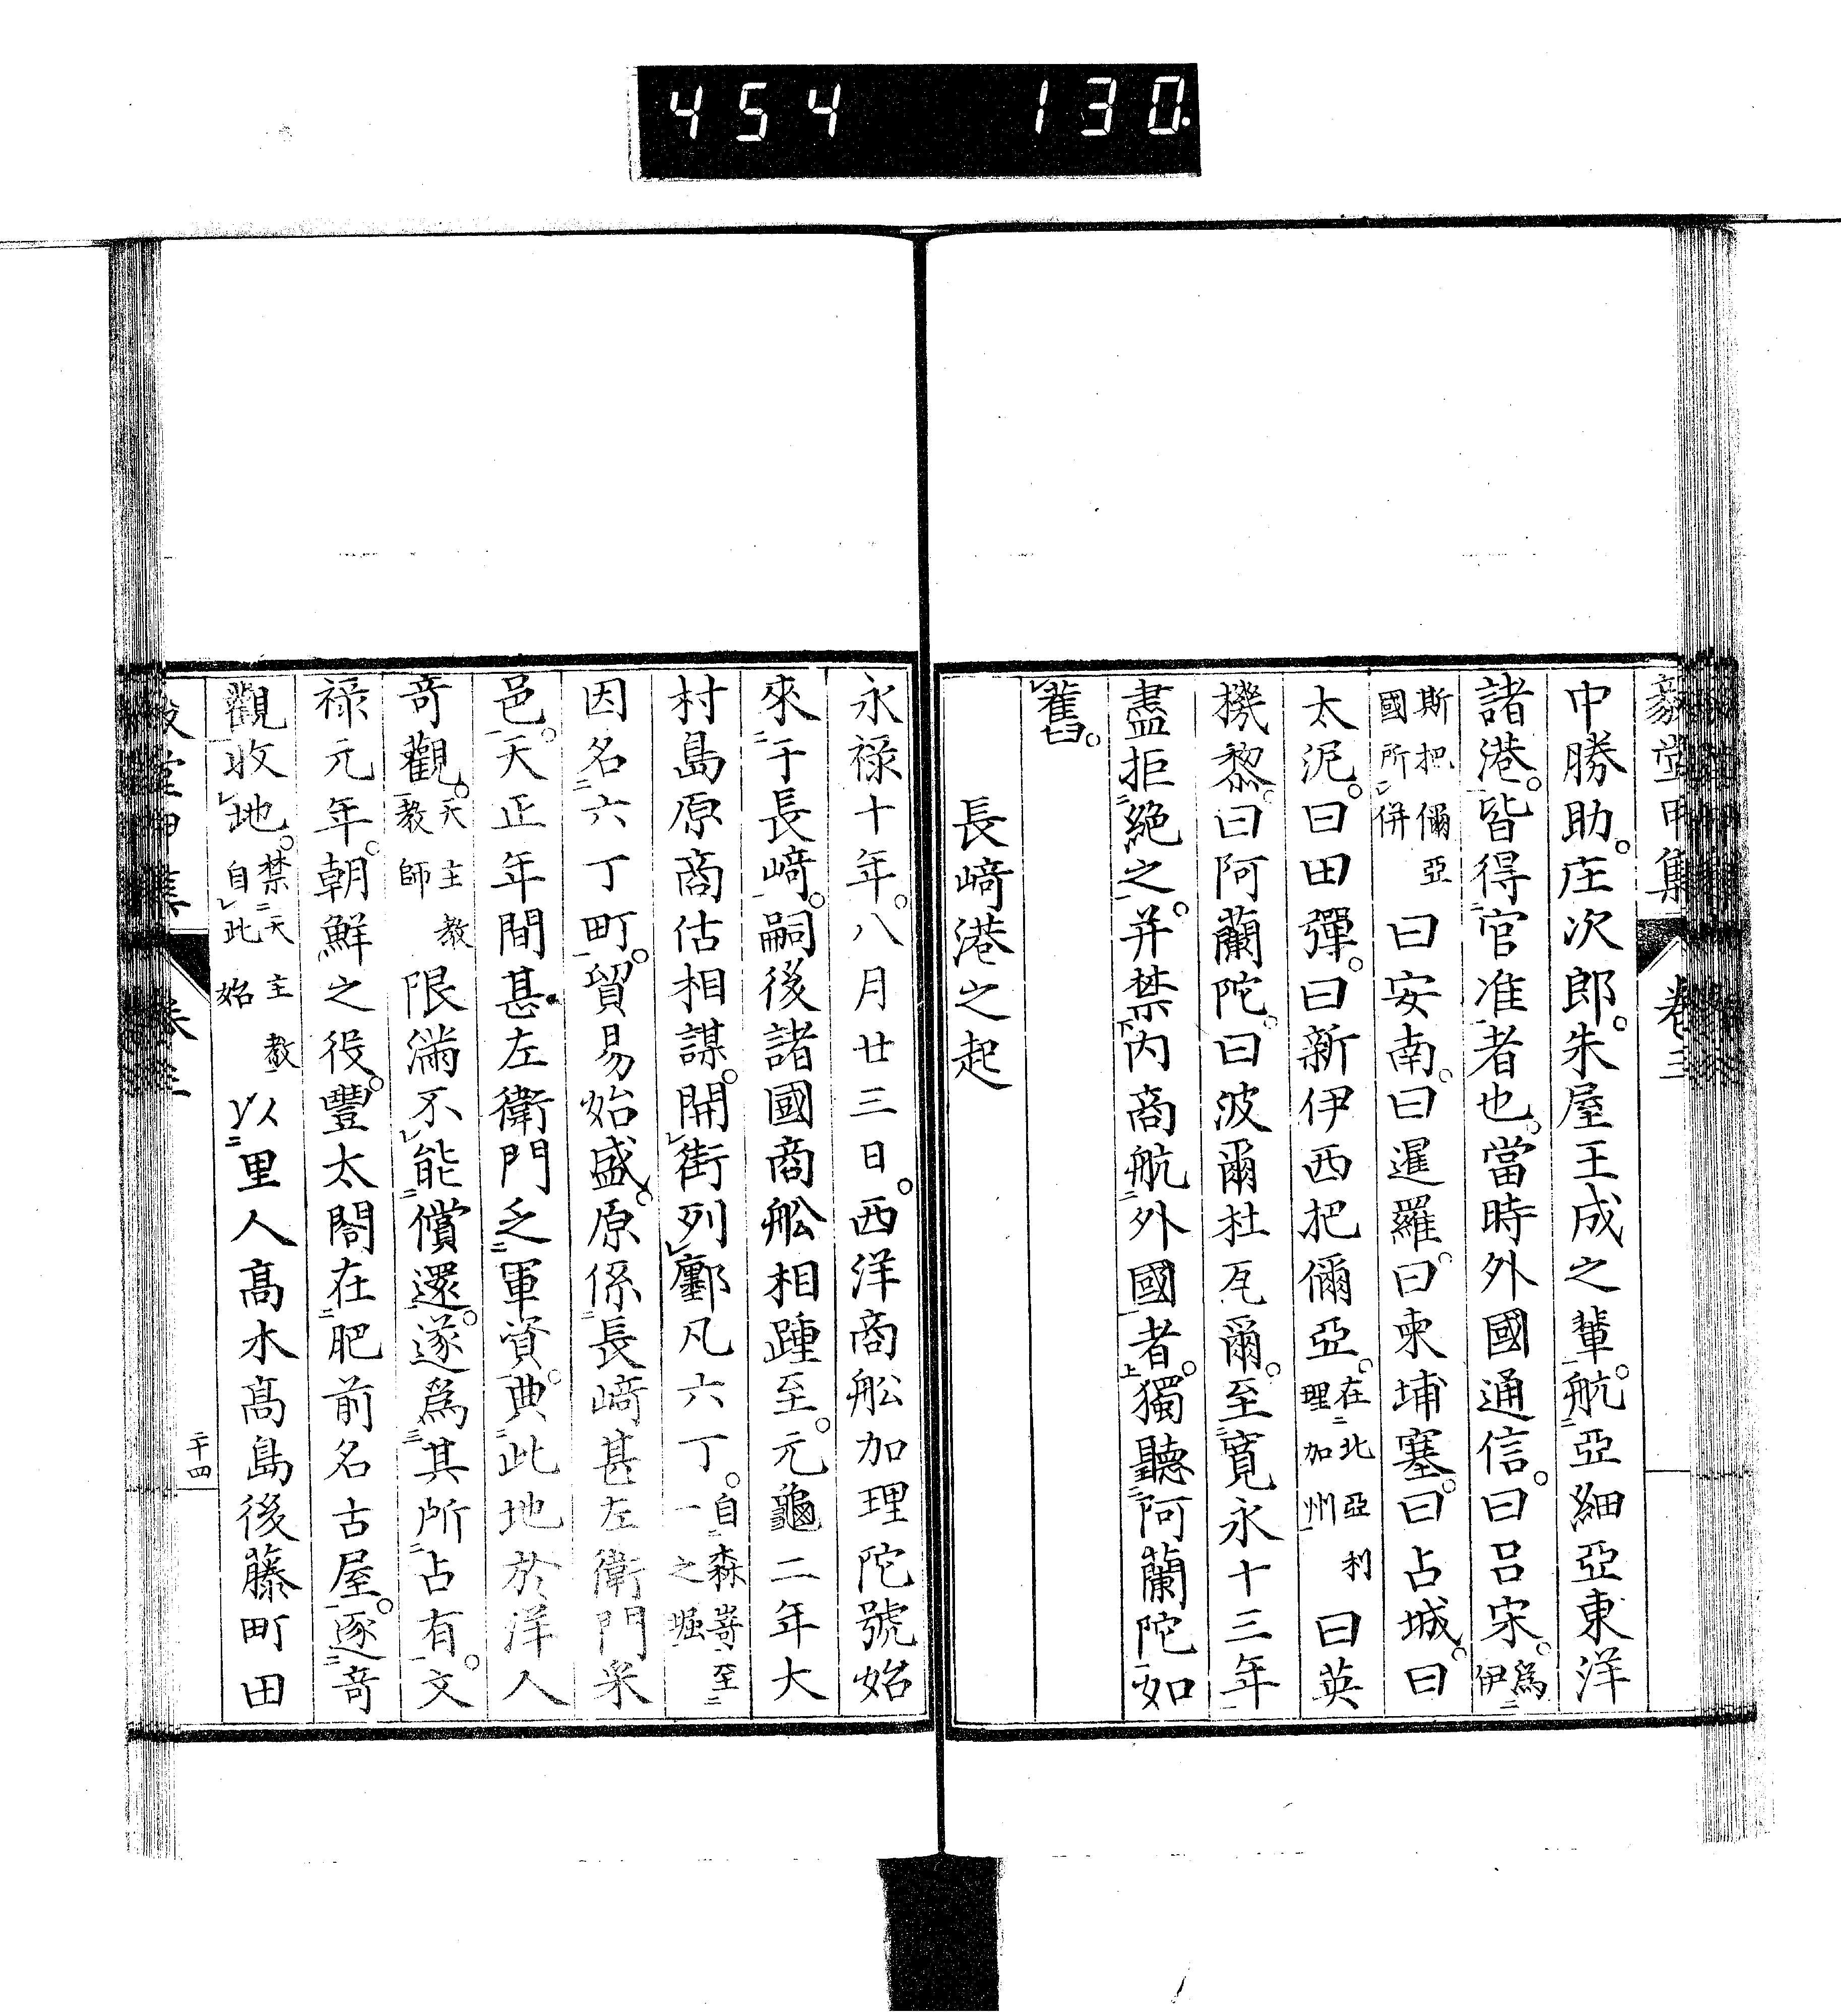 454 130.
毅堂丙集 卷三
中勝助。庄次郎。朱屋王成之輩。航亞細亞東洋
諸港。皆得官准者也。當時外國通信。曰呂宋。爲伊
斯把儞亞國所併 曰安南。曰暹羅。曰柬埔塞。曰占城。曰
太泥。曰田彈。曰新伊西把儞亞。在北亞利理加州 曰英
機黎。曰阿蘭陀。曰波爾杜瓦爾。至寛永十三年
盡拒絕之。并禁內商航外國者。獨聽阿蘭陀如
舊。
長崎港之起
永祿十年。八月廿三日。西洋商舩加理陀號始
來于長崎。嗣後諸國商舩相踵至。元龜二年大
村島原商估相謀。開街列鄽凡六丁。自森嵜至一之堀
因名六丁町。貿易始盛。原係長崎甚左衛門采
邑。天正年間甚左衛門乏軍資。典此地於洋人
奇觀。天主教教師 限滿不能償還。遂爲其所占有。文
祿元年。朝鮮之役。豐太閤在肥前名古屋。逐奇
觀收地。禁天主教自此始 以里人高木高島後藤町田
二十四